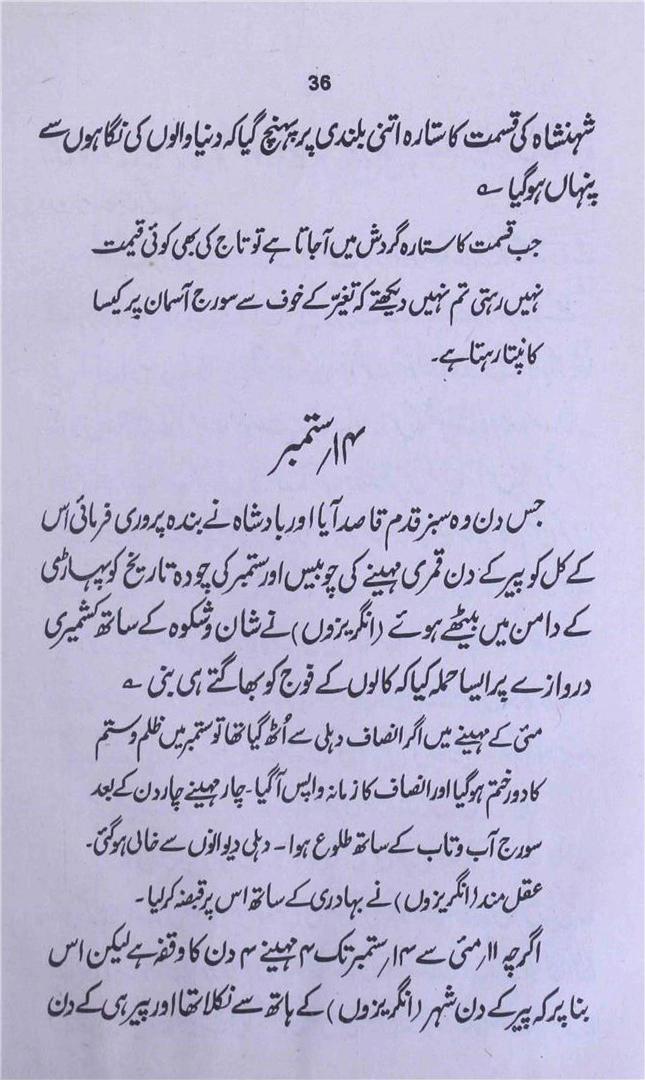 36
شہنشاہ کی قسمت کا ستارہ اتنی بلندی پر پہنچ گیا کہ دنیا والوں کی نگاہوں سے
پنہاں ہوگیا ؎
جب قسمت کا ستارہ گردش میں آجاتا ہے تو تاج کی بھی کوئی قیمت
نہیں رہتی تم نہیں دیکھتے کہ تغیّر کے خوف سے سورج آسمان پر کیسا
کانپتا رہتا ہے۔
۱۴؍ ستمبر
جس دن وہ سبز قدم قاصد آیا اور بادشاہ نے بندہ پروری فرمائی اس
کے کل کو پیر کے دن قمری مہینے کی چوبیس اور ستمبر کی چودہ تاریخ کو پہاڑی
کے دامن میں بیٹھے ہوئے (انگریزوں) نے شان و شکوہ کے ساتھ کشمیری
دروازے پر ایسا حملہ کیا کہ کالوں کے فوج کو بھاگتے ہی بنی ؎
مئی کے مہینے میں اگر انصاف دہلی سے اُٹھ گیا تھا تو ستمبر میں ظلم و ستم
کا دور ختم ہوگیا اور انصاف کا زمانہ واپس آگیا۔ چار مہینے چار دن کے بعد
سورج آب و تاب کے ساتھ طلوع ہوا۔ دہلی دیوانوں سے خالی ہوگئی۔
عقل مند (انگریزوں) نے بہادری کے ساتھ اس پر قبضہ کرلیا۔
اگرچہ ۱۱؍ مئی سے ۱۴؍ ستمبر تک ۴ مہینے ۴ دن کا وقفہ ہے لیکن اس
بنا پر کہ پیر کے دن شہر (انگریزوں) کے ہاتھ سے نکلا تھا اور پیر ہی کے دن